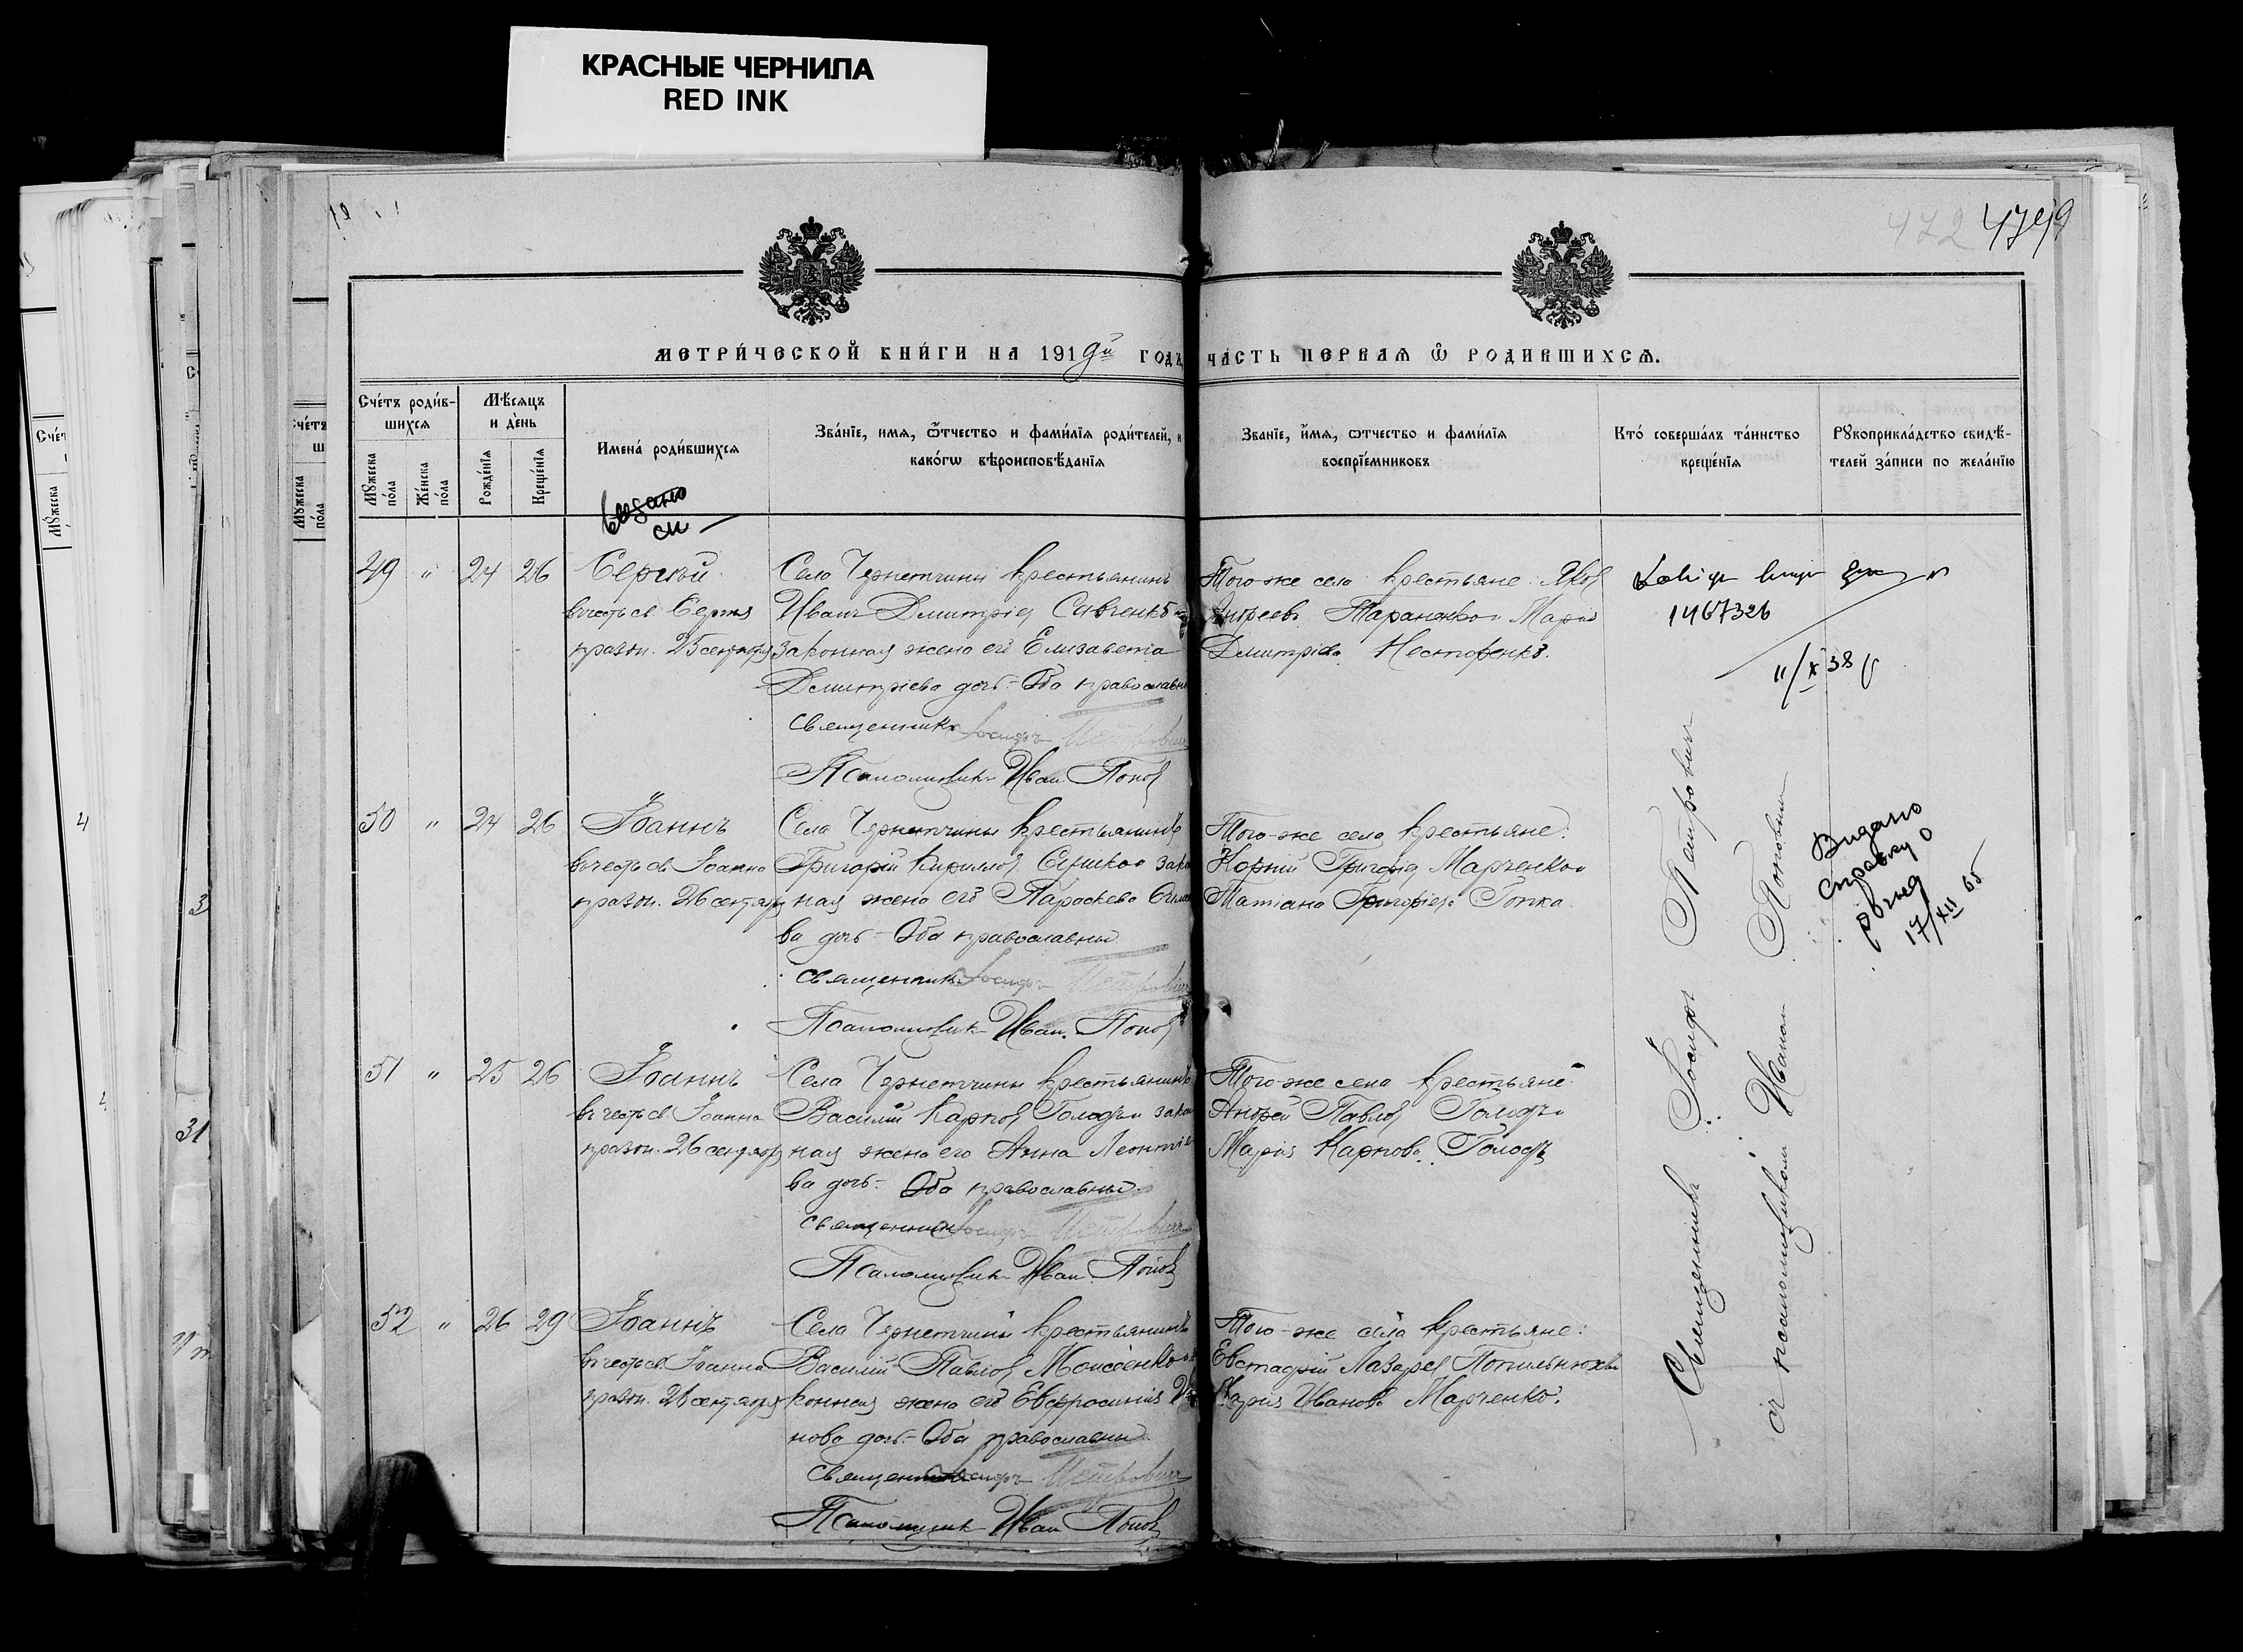 КРАСНЫЕ ЧЕРНИЛА
RED INK
472 4749
МЕТРИ́ЧЕСКОЙ КНИ́ГИ НА 1919й ГОДЪ ЧА́СТЬ ПЕРВАѦ Ѿ РОДИВШИХСѦ.
Сче́тъ роди́в-
шихсѧ
Мꙋ́жеска по́ла
Же́нска по́ла
Мѣ́сѧцъ
и де́нь
Рожде́нїѧ
Креще́нїѧ
Имена́ роди́вшихсѧ
Зва́нїе, имѧ, ѻ́тчество и фами́лїѧ роди́телей, и
како́гѡ вѣроисповѣ́данїѧ
Зва́нїе, и́мѧ, ѻтчество и фами́лїѧ
воспрїе́мниковъ
Кто́ соверша́лъ та́инство
креще́нїѧ
Рꙋкоприкла́дство свидѣ́-
телей за́писи по жела́нїю
49 " 24 26 Сергѣй
въ честь св. Сергія
празн. 25 сентября
Села Чернетчины крестьянинъ
Иванъ Димитріев Савченко и
законная жена его Елизавета
Димитріева дочь - Оба православны
Священникъ Іосифъ Петровичъ
Псаломщикъ Иван Попов
Того-же села крестьяне: Яков
Андреевъ Тараненко и Марія
Димитріева Нестеренко.
1467326
11/X 38
50 " 24 26 Іоаннъ
въ честь св. Іоанна
празн. 26 сентября
Села Чернетчины крестьянинъ
Григорій Кириллов закон
ная жена его Параскева
ва дочь - Оба православны
Священникъ Іосифъ Петровичъ
Псаломщикъ Иван Попов
Того-же села крестьяне:
Корній Григоріев Марченко и
Татіана Григоріева Гопка.
Видано
справку о
рожд
17/XII 65
51 " 25 26 Іоаннъ
въ честь св. Іоанна
празн. 26 сентября
Села Чернетчины крестьянинъ
Василій Карпов Голодъ и закон
ная жена его Анна Леонтіе
ва дочь - Оба православны
Священникъ Іосифъ Петровичъ
Псаломщикъ Иван Попов
Того-же села крестьяне:
Андрей Павлов Голодъ и
Марія Карпова Голодъ
52 " 26 29 Іоаннъ
въ честь св. Іоанна
празн. 26 сентября
Села Чернетчины крестьянинъ
Василій Павлов Моисеенко и за
конная жена его Евфросинія Ива
нова дочь - Оба православны
Священникъ Іосифъ Петровичъ
Псаломщикъ Иван Попов
Того-же села крестьяне:
Евстафій Лазарев
Марія Иванова Марченко.
Священникъ Іосифъ Петровичъ
съ псаломщикомъ Иваном Поповым